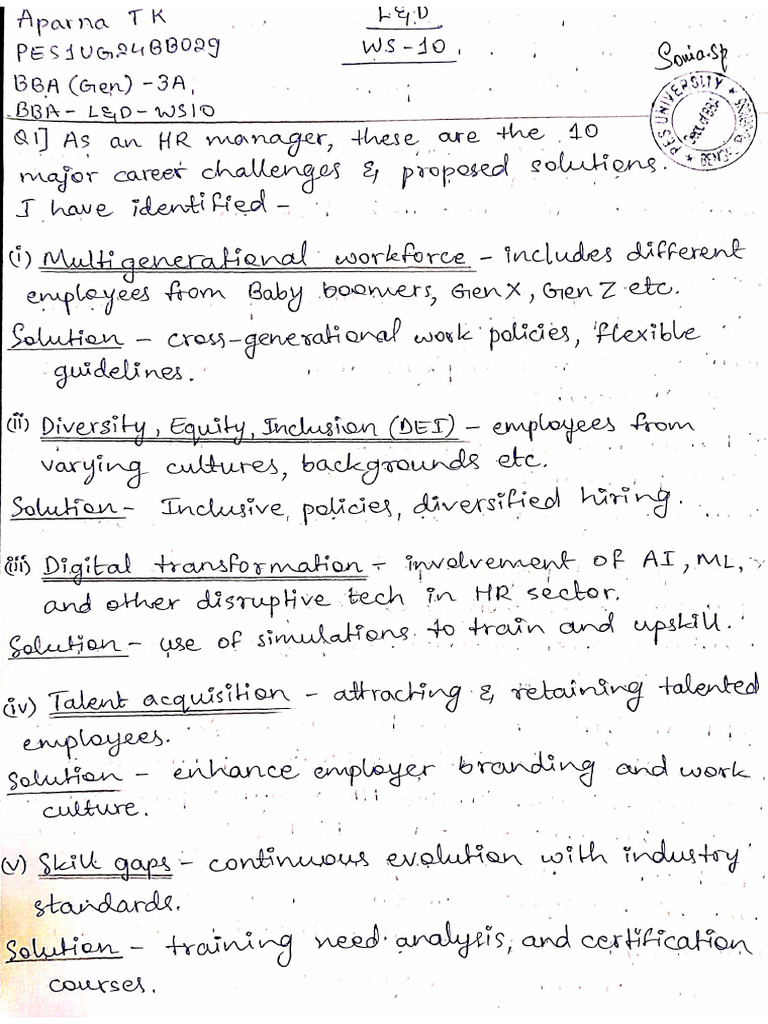 Aparna T K
L&D
PES1UG24BB029
WS-10
BBA (Gen) - 3A,
Sonia.Sp
BBA - L&D - WS10
PES UNIVERSITY
Q1] As an HR manager, these are the 10
major career challenges & proposed solutions.
I have identified -
(i) Multigenerational workforce - includes different
employees from Baby boomers, Gen X, Gen Z etc.
Solution - cross-generational work policies, flexible
guidelines.
(ii) Diversity, Equity, Inclusion (DEI) - employees from
varying cultures, backgrounds etc.
Solution - Inclusive policies, diversified hiring.
(iii) Digital transformation - involvement of AI, ML,
and other disruptive tech in HR sector.
Solution - use of simulations to train and upskill.
(iv) Talent acquisition - attracting & retaining talented
employees.
Solution - enhance employer branding and work
culture.
(v) Skill gaps - continuous evolution with industry
standards.
Solution - training need analysis, and certification
courses.